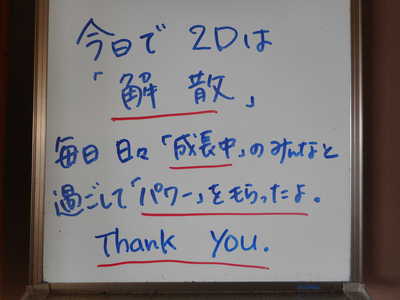 今日で 2Dは
「解散」
毎日 日々「成長中」のみんなと
過ごして「パワー」をもらったよ。
Thank You.